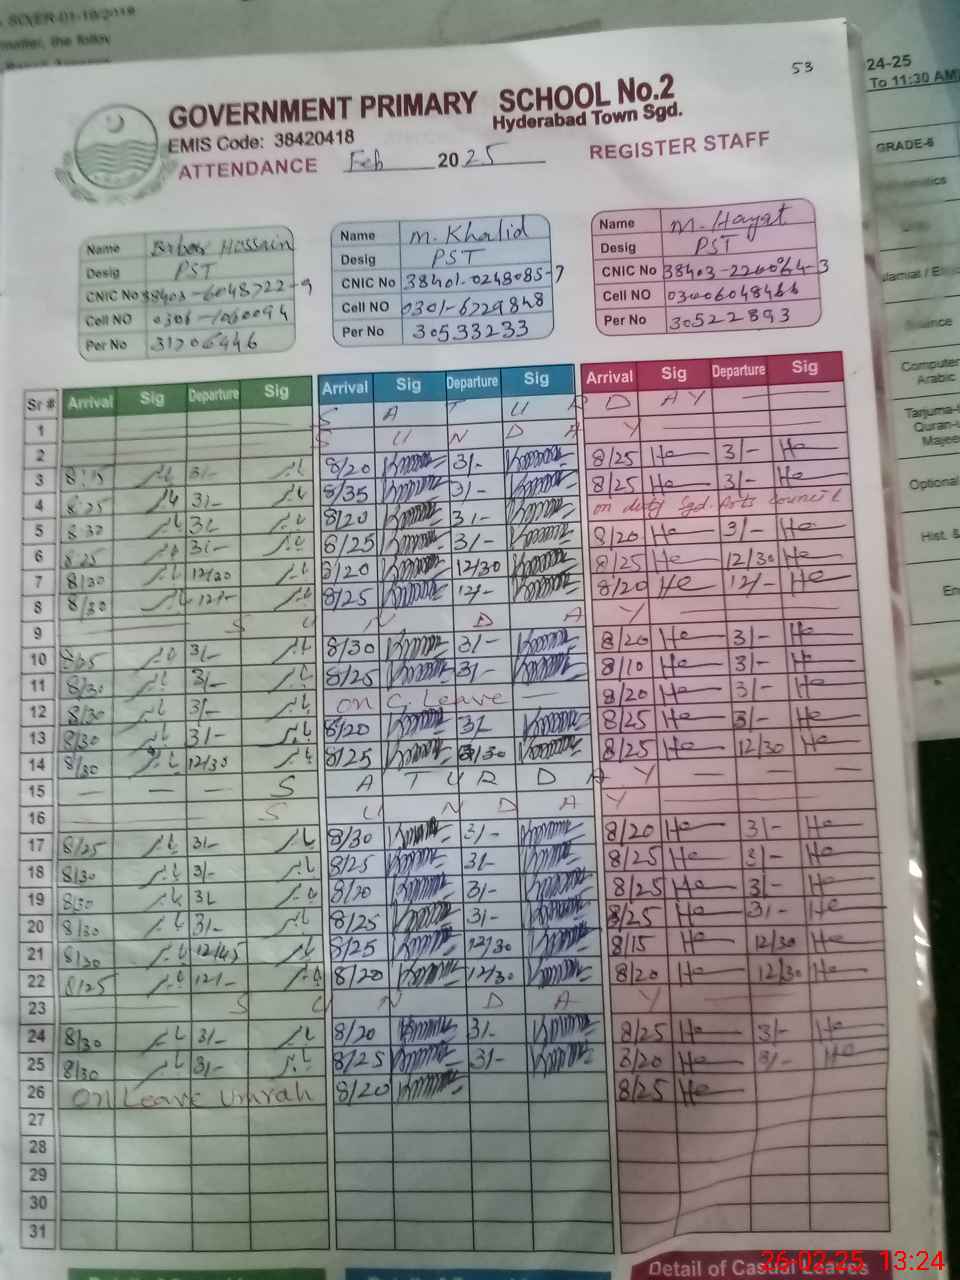 SO(ER-01-19/2019
matter, the follov
53
24-25
To 11:30 AM
GOVERNMENT PRIMARY SCHOOL No.2
Hyderabad Town Sgd.
EMIS Code: 38420418
ATTENDANCE Feb 2025 REGISTER STAFF
GRADE-6
Name Hussain
Desig PST
CNIC No
Cell NO
Per No 31706446
Name M. Khalid
Desig PST
CNIC No 38401-0248085-7
Cell NO 0301-6729848
Per No 30533233
Name M. Hayat
Desig PST
CNIC No
Cell NO 03006048466
Per No 30522893
Sr # Arrival Sig Departure Sig Arrival Sig Departure Sig Arrival Sig Departure Sig
1 S A T U R D A Y
2 S U N D A Y
3 8:15 3/- 8/20 3/- 8/25 He 3/- He
4 8:25 3/- 8/35 3/- 8/25 He 3/- He
5 8:30 3/- 8/20 3/- on duty Sgd. Arts Council
6 8:25 3/- 8/25 3/- 8/20 He 3/- He
7 8/30 12/30 8/20 12/30 8/25 He 12/30 He
8 8/30 12/- 8/25 12/- 8/20 He 12/- He
9 S U N D A Y
10 8/25 3/- 8/30 3/- 8/20 He 3/- He
11 8/30 3/- 8/25 3/- 8/10 He 3/- He
12 8/30 3/- on C. Leave 8/20 He 3/- He
13 8/30 3/- 8/20 3/- 8/25 He 3/- He
14 8/30 12/30 8/25 12/30 8/25 He 12/30 He
15 S A T U R D A Y
16 S U N D A Y
17 8/25 3/- 8/30 3/- 8/20 He 3/- He
18 8/30 3/- 8/25 3/- 8/25 He 3/- He
19 8/30 3/- 8/20 3/- 8/25 He 3/- He
20 8/30 3/- 8/25 3/- 8/25 He 3/- He
21 8/30 12/45 8/25 12/30 8/15 He 12/30 He
22 8/25 12/- 8/20 12/30 8/20 He 12/30 He
23 S U N D A Y
24 8/30 3/- 8/20 3/- 8/25 He 3/- He
25 8/30 3/- 8/25 3/- 8/20 He 3/- He
26 On Leave Umrah 8/20 8/25 He
27
28
29
30
31
Computer
Arabic
Tarjuma-
Quran-
Majee
Optional
Hist. &
Detail of Casual Leaves
26-02-25 13:24